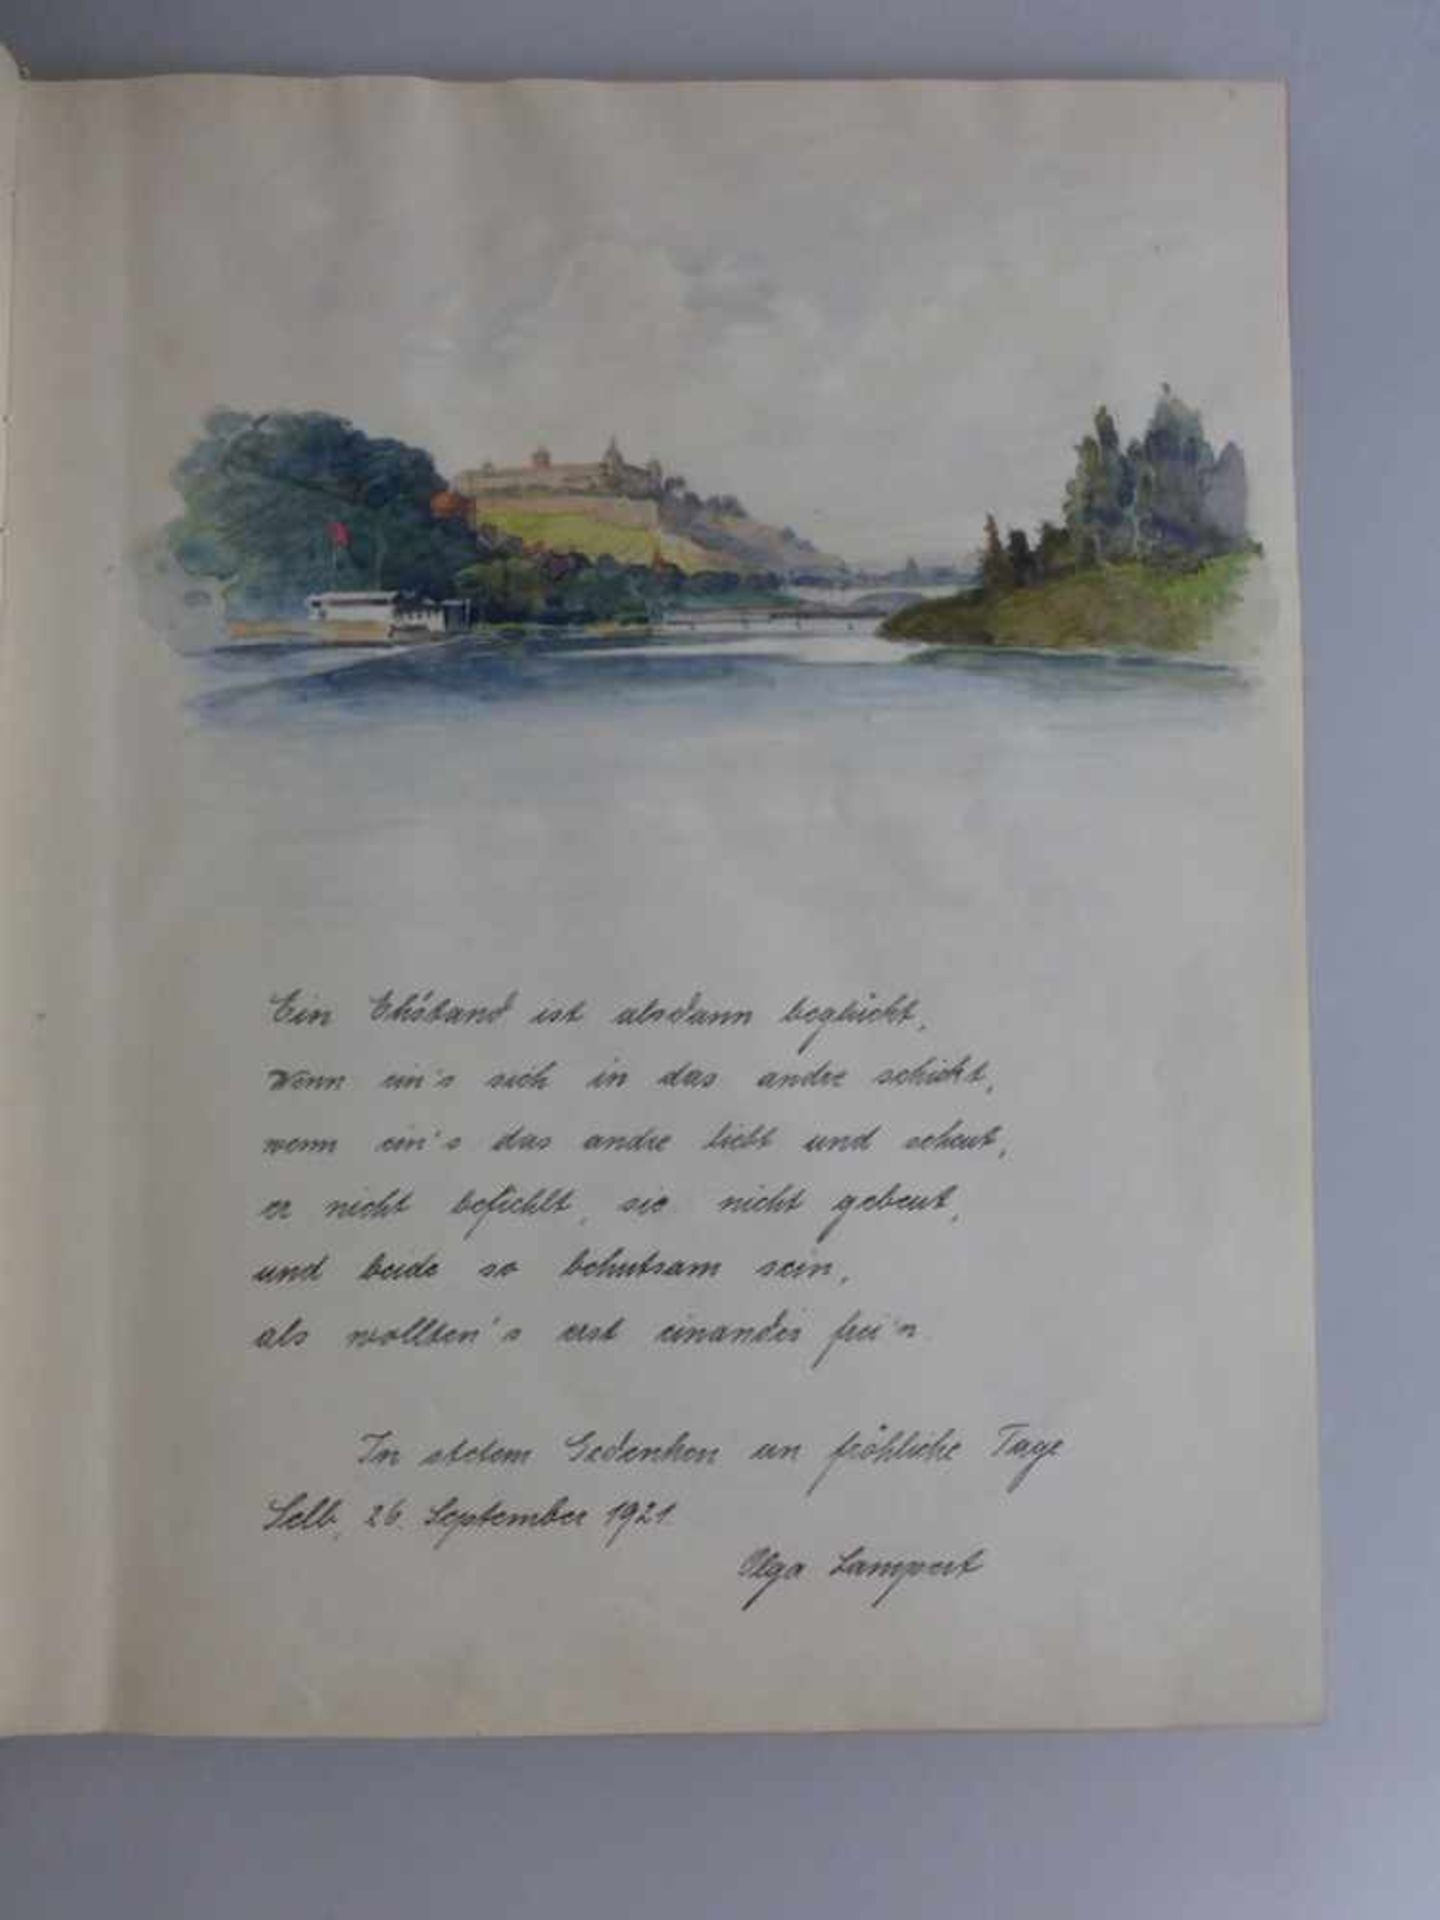 Ein Eh'stand ist alsdann beglückt,
Wenn ein's sich in das andre schickt,
wenn ein's das andre liebt und scheut,
er nicht befiehlt, sie nicht gebeut,
und beide so behutsam sein,
als wollten's erst einander frei'n
In stetem Gedenken an fröhliche Tage
Selb, 26. September 1921.
Olga Lampert